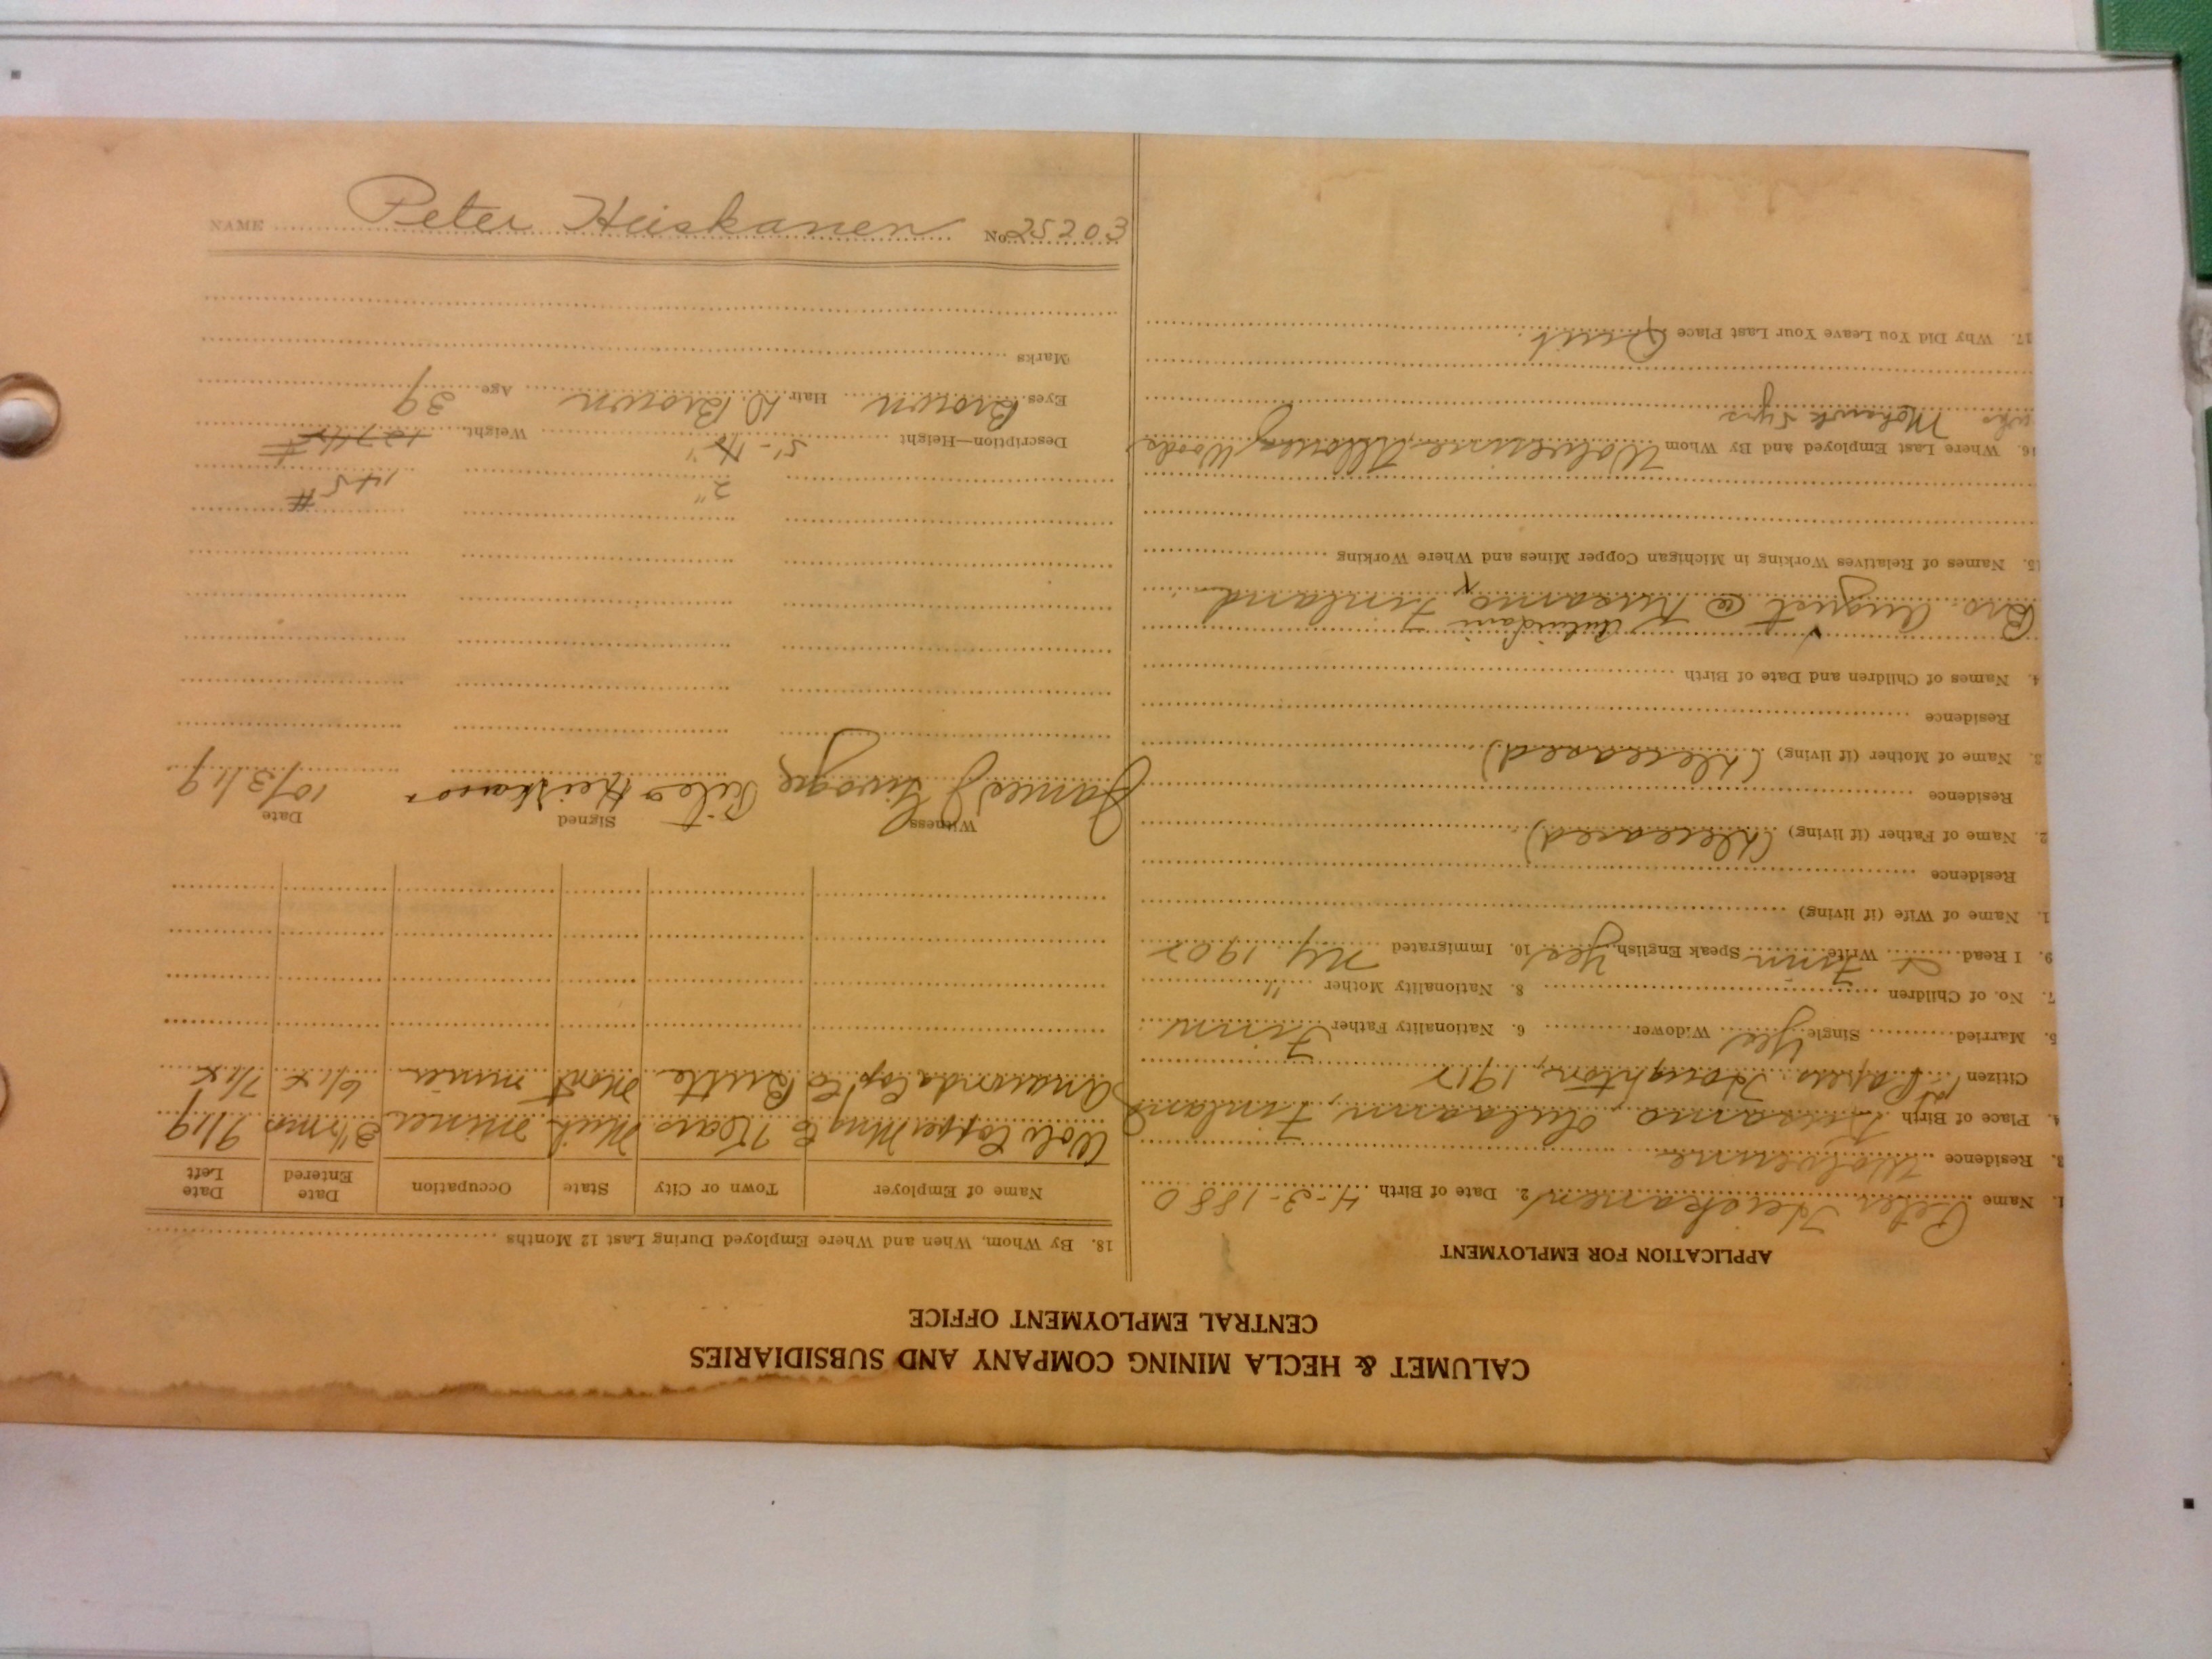 CALUMET & HECLA MINING COMPANY AND SUBSIDIARIES
CENTRAL EMPLOYMENT OFFICE
APPLICATION FOR EMPLOYMENT
1. Name Peter Heiskanen 2. Date of Birth 4-3-1880
3. Residence Wolverine
4. Place of Birth Kuusamo, Finland
Citizen 1st Papers. Houghton, 1912
5. Married Single Yes Widower 6. Nationality Father Finn
7. No. of Children 8. Nationality Mother "
9. I Read Write Finn Speak English Yes 10. Immigrated N.Y. 1902
1. Name of Wife (if living)
Residence
2. Name of Father (if living) (deceased)
Residence
3. Name of Mother (if living) (deceased)
Residence
4. Names of Children and Date of Birth
Bro. August @ Kuusamo Finland
15. Names of Relatives Working in Michigan Copper Mines and Where Working
16. Where Last Employed and By Whom Wolverine, Allouez, Woods
Mohawk 5 yrs
17. Why Did You Leave Your Last Place Quit.
18. By Whom, When and Where Employed During Last 12 Months
Name of Employer Town or City State Occupation Date Entered Date Left
Wolv Copper Mng Co Mich miner 3 1/2 mos 9/19
Anaconda Cop. Co Butte Mont miner
Witness Signed Date
James J Peter Heiskanen 10/3/19
2" 145#
Description—Height 5'- Weight
Eyes Brown Hair D. Brown Age 39
Marks
NAME Peter Heiskanen No. 25203